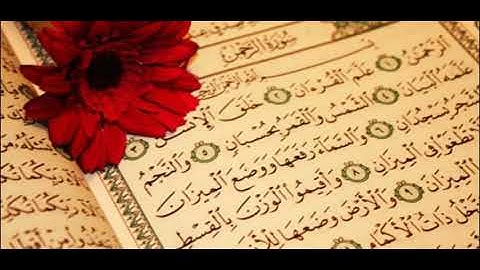 سُورَةُ الرَّحْمَٰن
بِسْمِ اللَّهِ الرَّحْمَٰنِ الرَّحِيمِ
الرَّحْمَٰنُ ١ عَلَّمَ الْقُرْءَانَ ٢ خَلَقَ الْإِنسَٰنَ ٣
عَلَّمَهُ الْبَيَانَ ٤ الشَّمْسُ وَالْقَمَرُ بِحُسْبَانٍ ٥ وَالنَّجْمُ
شَّجَرُ يَسْجُدَانِ ٦ وَالسَّمَاءَ رَفَعَهَا وَوَضَعَ الْمِيزَانَ
تَطْغَوْا فِي الْمِيزَانِ ٨ وَأَقِيمُوا الْوَزْنَ بِالْقِسْطِ
الْمِيزَانَ ٩ وَالْأَرْضَ وَضَعَهَا
ذَاتُ الْأَكْمَامِ